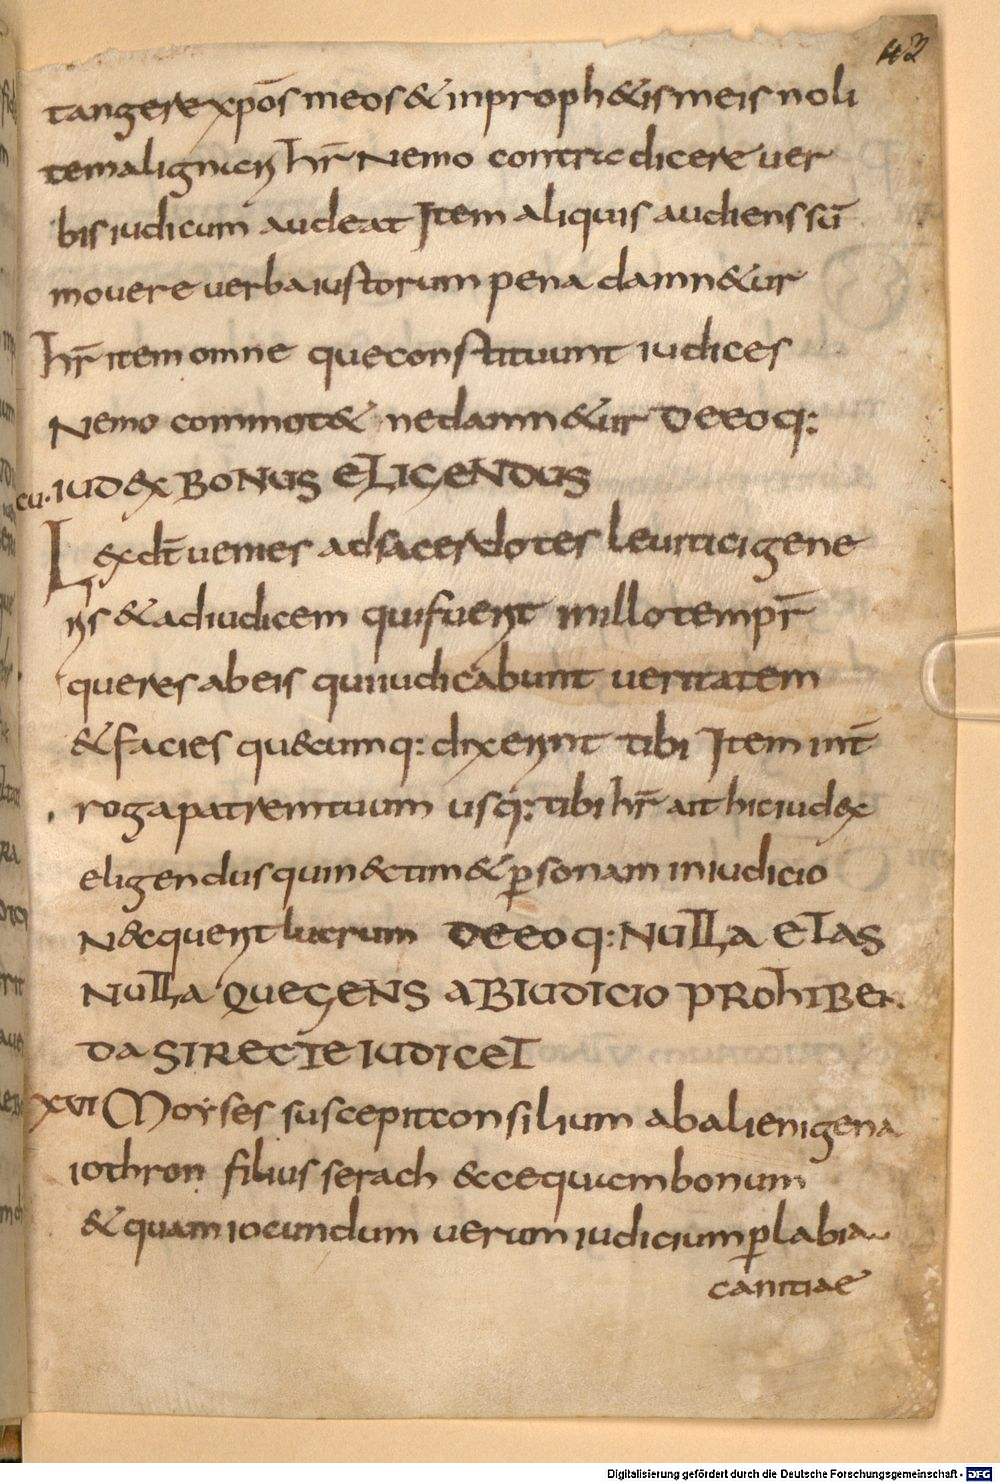 43
tangere xp̄os meos & in proph&is meis noli
te malignari hr̄ Nemo contradicere ver
bis iudicum audeat Item aliquis audiens sū
movere verba iustorum pena damn&ur
hr̄ item omne que constituunt iudices
Nemo commot& ne damn&ur De eo q:
iud&x BONUS ELIGENDUS
L&x dt̄ venies ad sacerdotes leuitici gene
ris & ad iudicem qui fuerit in illo tempr̄
queres ab eis qui iudicabunt veritatem
& facies qu&cumq: dixerint tibi Item int̄
roga patrem tuum usq: tibi hr̄ ait hic iud&x
eligendus qui n& tim& p̱sonam in iudicio
N&c querit lucrum De eo q: NULLA ETAS
NULLA QUE GENS A BIUDICIO PROHIBEN
DA SI RECTE IUDICET
XVI Moyses suscepit consilium ab alienigena
iothron filius serach &ce quam bonum
& quam iocundum verum iudicium p̱ labia
canitiae
Digitalisierung gefördert durch die Deutsche Forschungsgemeinschaft - DFG